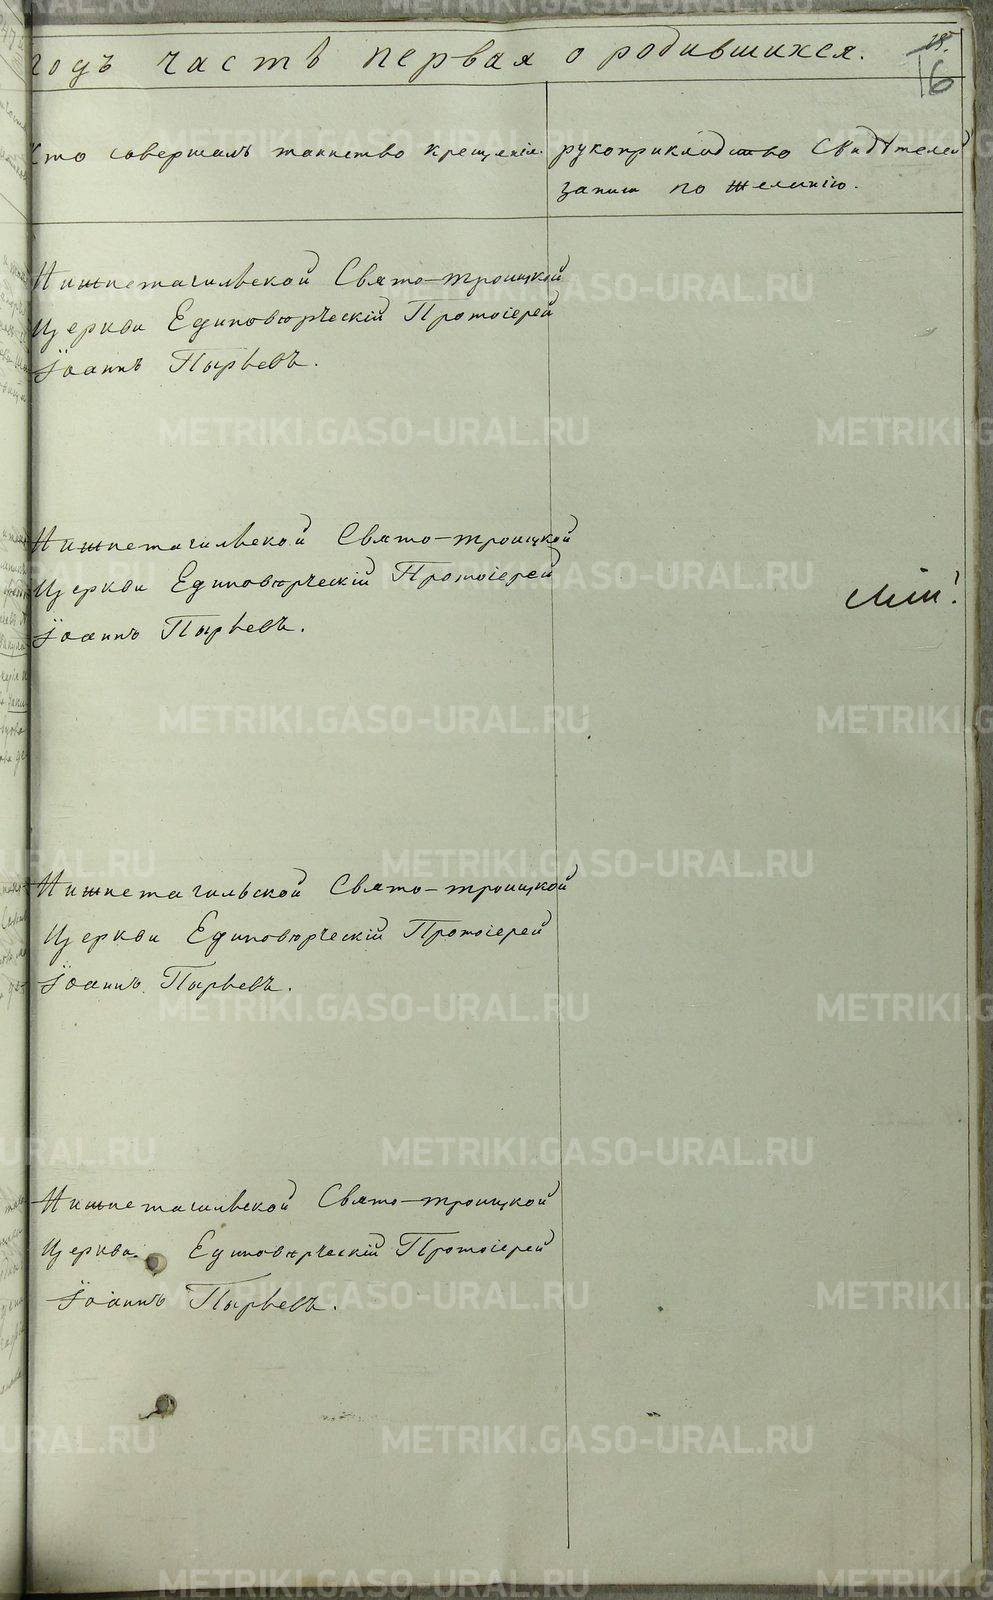 годъ часть первая о родившихся.
16
Кто совершалъ таинство крещенія.
рукоприкладство свидѣтелей
записи по желанію.
Нижнетагильской Свято-Троицкой
Церкви Единовѣрческій Протоіерей
Іоаннъ Пырьевъ.
Нижнетагильской Свято-Троицкой
Церкви Единовѣрческій Протоіерей
Іоаннъ Пырьевъ.
Нижнетагильской Свято-Троицкой
Церкви Единовѣрческій Протоіерей
Іоаннъ Пырьевъ.
Нижнетагильской Свято-Троицкой
Церкви Единовѣрческій Протоіерей
Іоаннъ Пырьевъ.
METRIKI.GASO-URAL.RU